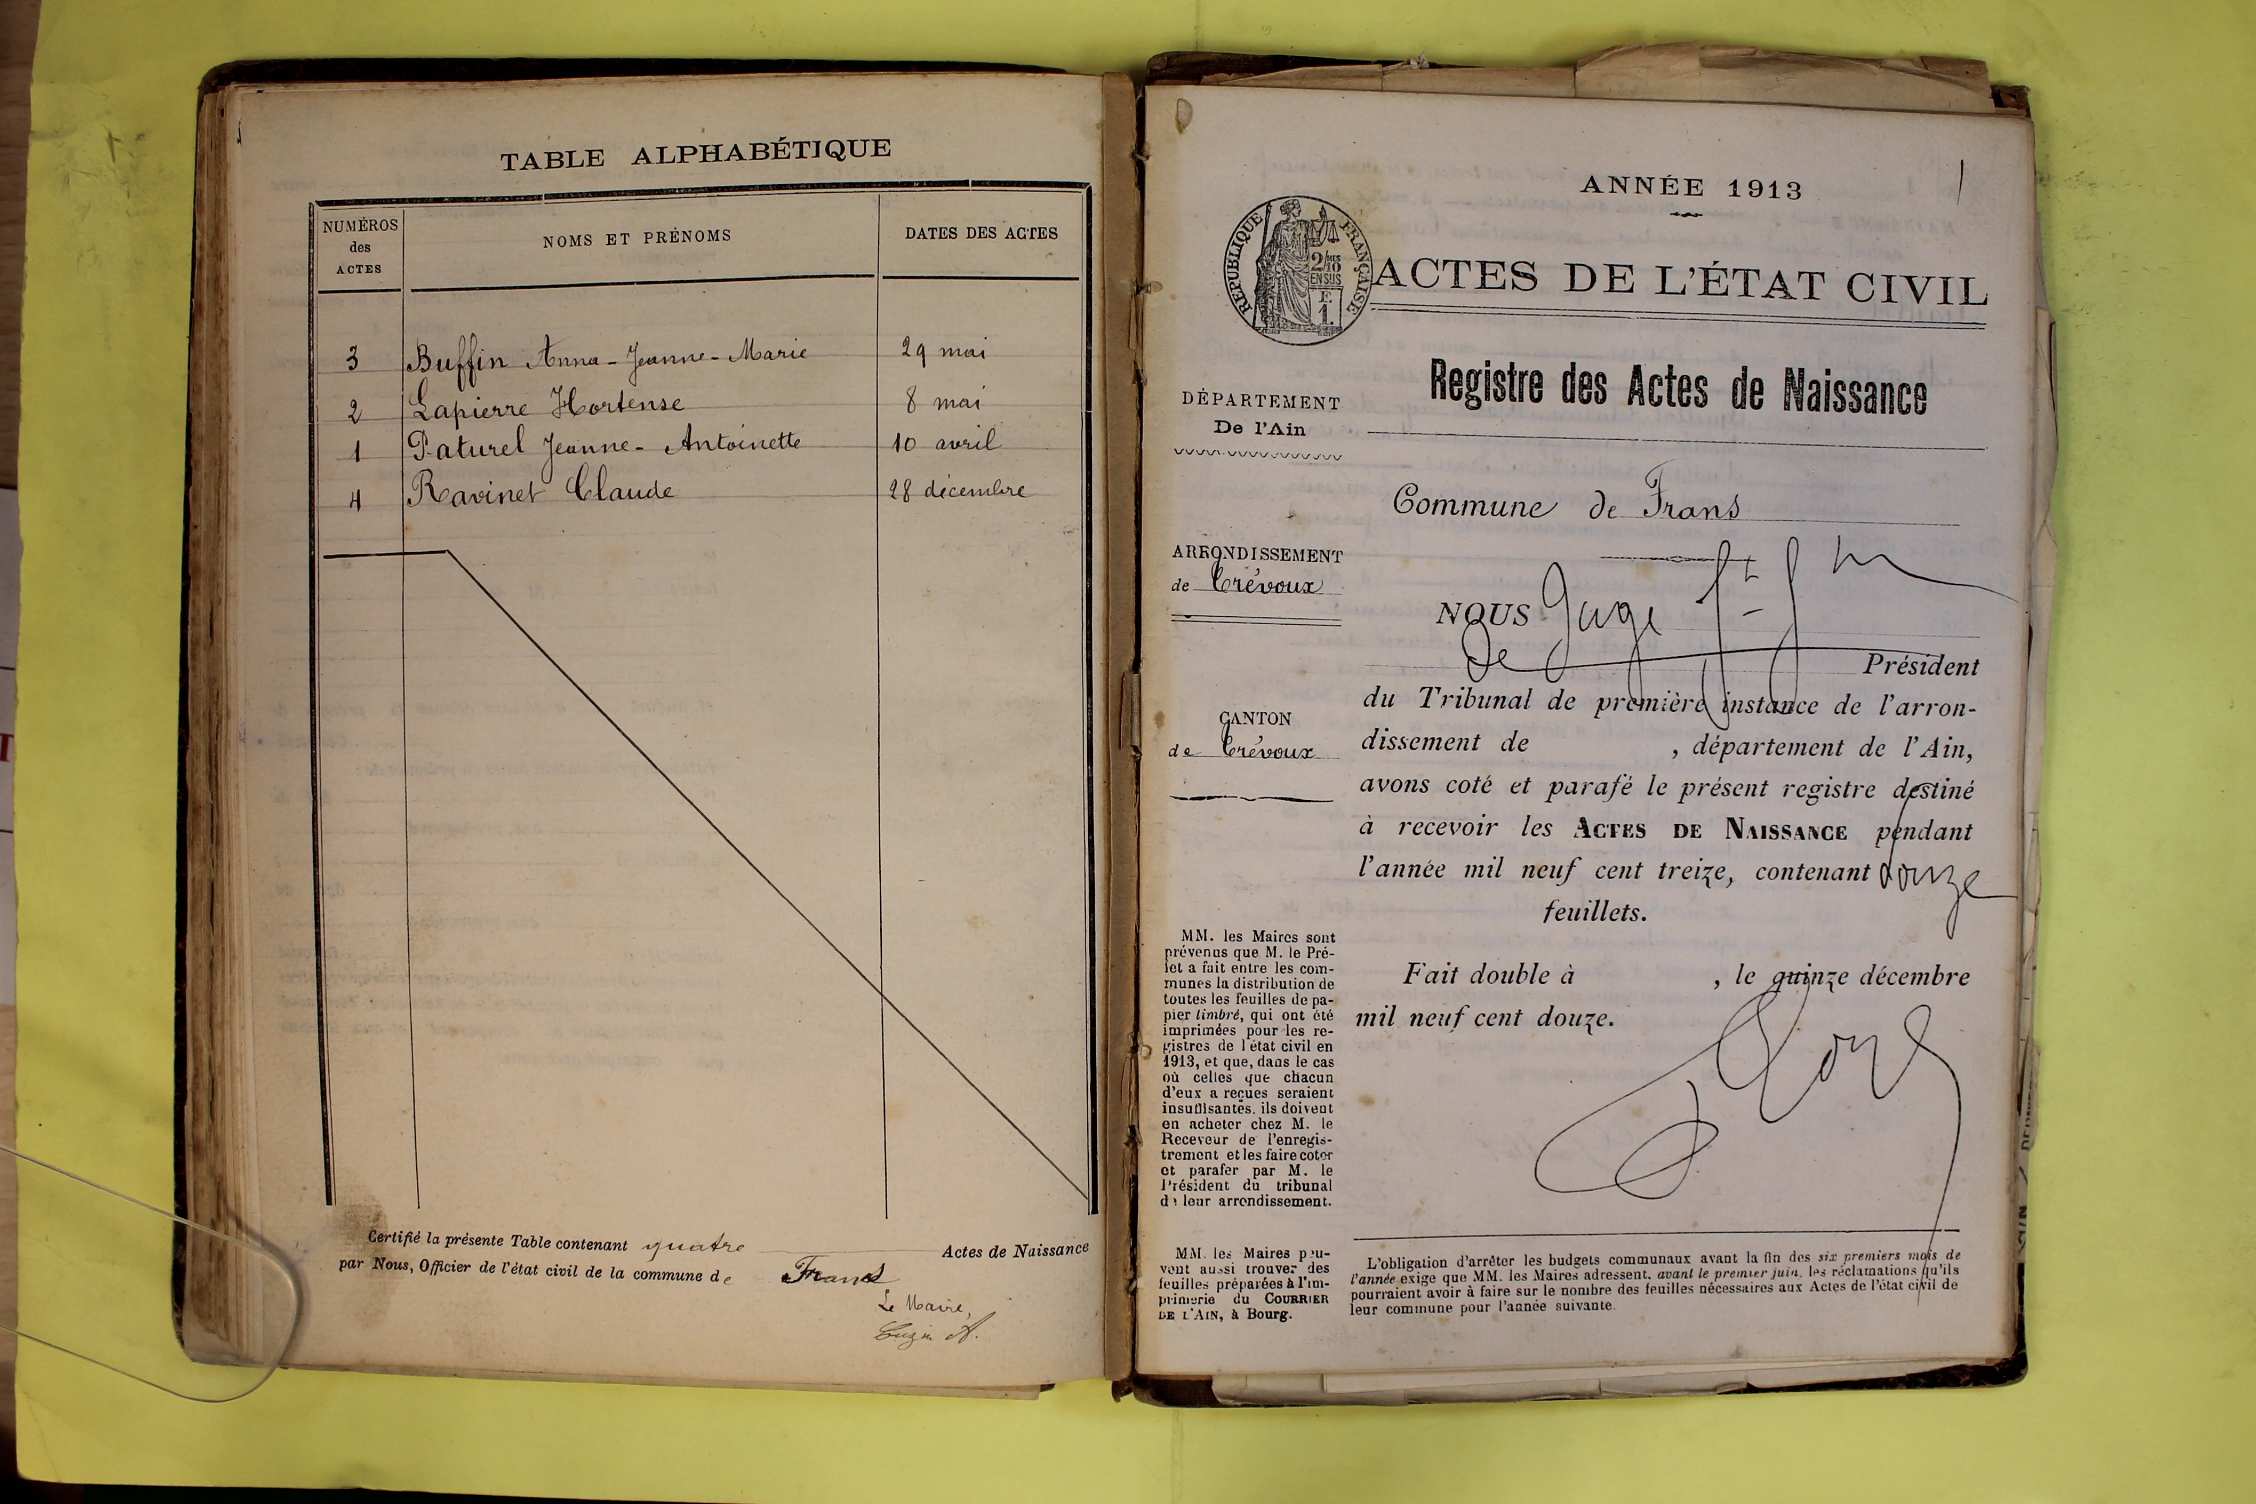 TABLE ALPHABÉTIQUE
NUMÉROS
des
ACTES
NOMS ET PRÉNOMS
DATES DES ACTES
3 Buffin Anna-Jeanne-Marie 29 mai
2 Lapierre Hortense 8 mai
1 Paturel Jeanne-Antoinette 10 avril
4 Ravinet Claude 28 décembre
Certifié la présente Table contenant quatre Actes de Naissance
par Nous, Officier de l'état civil de la commune de Frans
Le Maire,
Cuzin A.
1
ANNÉE 1913
RÉPUBLIQUE FRANÇAISE
2/10 MES
EN SUS
F.
1.
ACTES DE L'ÉTAT CIVIL
Registre des Actes de Naissance
DÉPARTEMENT
De l'Ain
Commune de Frans
ARRONDISSEMENT
de Trévoux
NOUS Juge
de Président
du Tribunal de première instance de l'arron-
dissement de , département de l'Ain,
avons coté et parafé le présent registre destiné
à recevoir les ACTES DE NAISSANCE pendant
l'année mil neuf cent treize, contenant douze
feuillets.
Fait double à , le quinze décembre
mil neuf cent douze.
CANTON
de Trévoux
MM. les Maires sont
prévenus que M. le Pré-
fet a fait entre les com-
munes la distribution de
toutes les feuilles de pa-
pier timbré, qui ont été
imprimées pour les re-
gistres de l'état civil en
1913, et que, dans le cas
où celles que chacun
d'eux a reçues seraient
insuffisantes, ils doivent
en acheter chez M. le
Receveur de l'enregis-
trement et les faire coter
et parafer par M. le
Président du tribunal
de leur arrondissement.
MM. les Maires peu-
vent aussi trouver des
feuilles préparées à l'im-
primerie du COURRIER
DE L'AIN, à Bourg.
L'obligation d'arrêter les budgets communaux avant la fin des six premiers mois de
l'année exige que MM. les Maires adressent, avant le premier juin, les réclamations qu'ils
pourraient avoir à faire sur le nombre des feuilles nécessaires aux Actes de l'état civil de
leur commune pour l'année suivante.